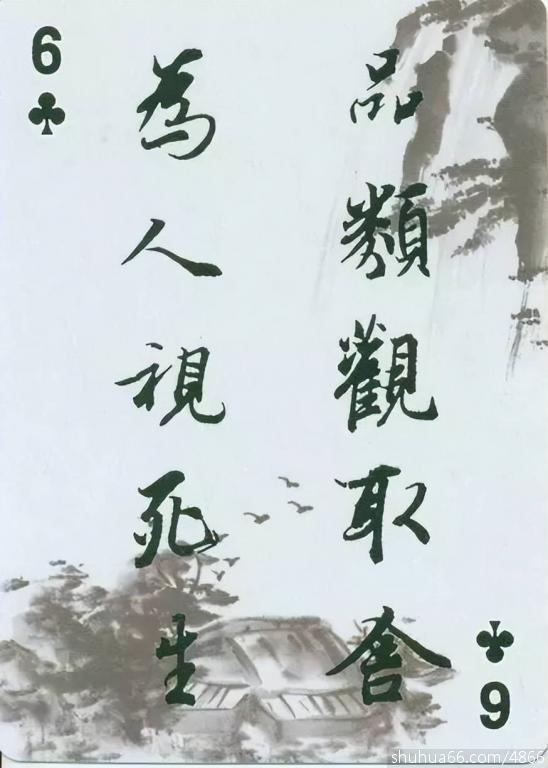 6
品類觀取舍
為人視死生
6
shuhua66.com/4866